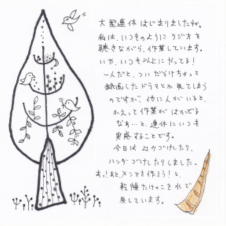 大型連休はじまりましたね。
私は、いつものようにラジオを
聴きながら、作業しています。
いや、いつもみんなに行ってる!
んだと、ついだらけちゃって
録画したドラマとか見てしまう
のですが、他に人がいると、
かえって作業がはかどる
なあ…と、連休にいつも
実感することです。
今日は 山づけたり、
ハンダづけしたりしました。
おっ!あとメンマを作ろう!と、
乾燥たけのこを水で
戻しています。